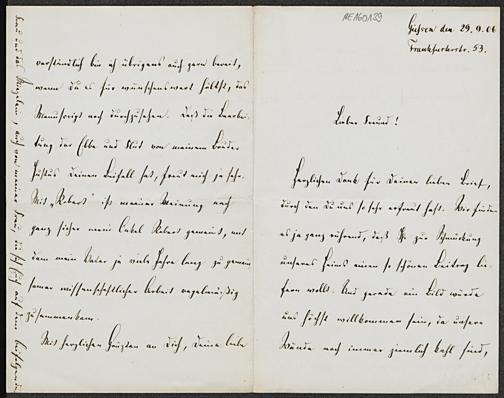 MEAG0139
Gießen den 29.9.06
Frankfurterstr. 53.
Lieber Freund!
Herzlichen Dank für Deinen lieben Brief,
durch den Du uns so sehr erfreut hast. Wir finden
es ja ganz rührend, daß Ihr zur Schmückung
unseres Heims einen so schönen Beitrag lie-
fern wollt. Und gerade ein Bild würde
uns höchst willkommen sein, da unsere
Wände noch immer ziemlich kahl sind,
verständlich bin ich übrigens auch gern bereit,
wenn Du es für wünschenswert hältst, das
Manuscript noch durchzusehen. Daß die Bearbei-
tung der Ebbe und Flut von meinem Bruder
Justus Deinen Beifall hat, freut mich ja sehr.
Mit „Robert" ist meiner Meinung nach
ganz sicher mein Onkel Robert gemeint, mit
dem mein Vater ja viele Jahre lang zu gemein-
samer wissenschaftlicher Arbeit regelmäßig
zusammenkam.
Mit herzlichen Grüßen an Dich, Deine liebe
Frau und das, auch von meiner Frau, die sich auf dem